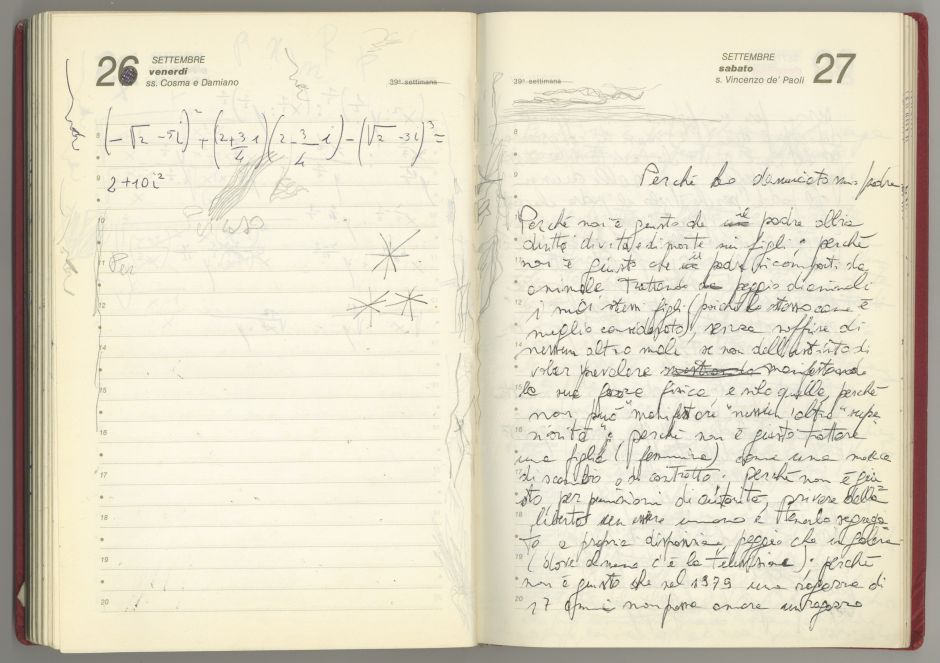 26 SETTEMBRE
venerdì
ss. Cosma e Damiano
39ª settimana
(-√2 -5i)² + (2+3/4 i)(2-3/4 i) - (√2 -3i)³ =
2+10i²
Per
8
9
10
11
12
14
15
16
17
18
19
20
SETTEMBRE 27
sabato
s. Vincenzo de' Paoli
39ª settimana
Perché ho denunciato mio padre
Perché non è giusto che il padre abbia
diritto di vita e di morte sui figli; perché
non è giusto che il padre si comporti da
animale trattando peggio di animali
i suoi stessi figli (poiché lo stesso cane è
meglio considerato), senza soffrire di
nessun altro male se non dell'istinto di
voler prevalere manifestando
la sua forza fisica, e solo quella, perché
non può "manifestare" nessun'altra "supe
riorità"; perché non è giusto trattare
una figlia (femmina) come una
di scambio o di contratto; perché non è giu
sto per punizioni di autorità, privare della
libertà un essere umano e tenerlo segrega
to a propria disposizione, peggio che in galera
(dove almeno c'è la televisione); perché
non è giusto che nel 1979 una ragazza di
17 anni non possa amare un ragazzo